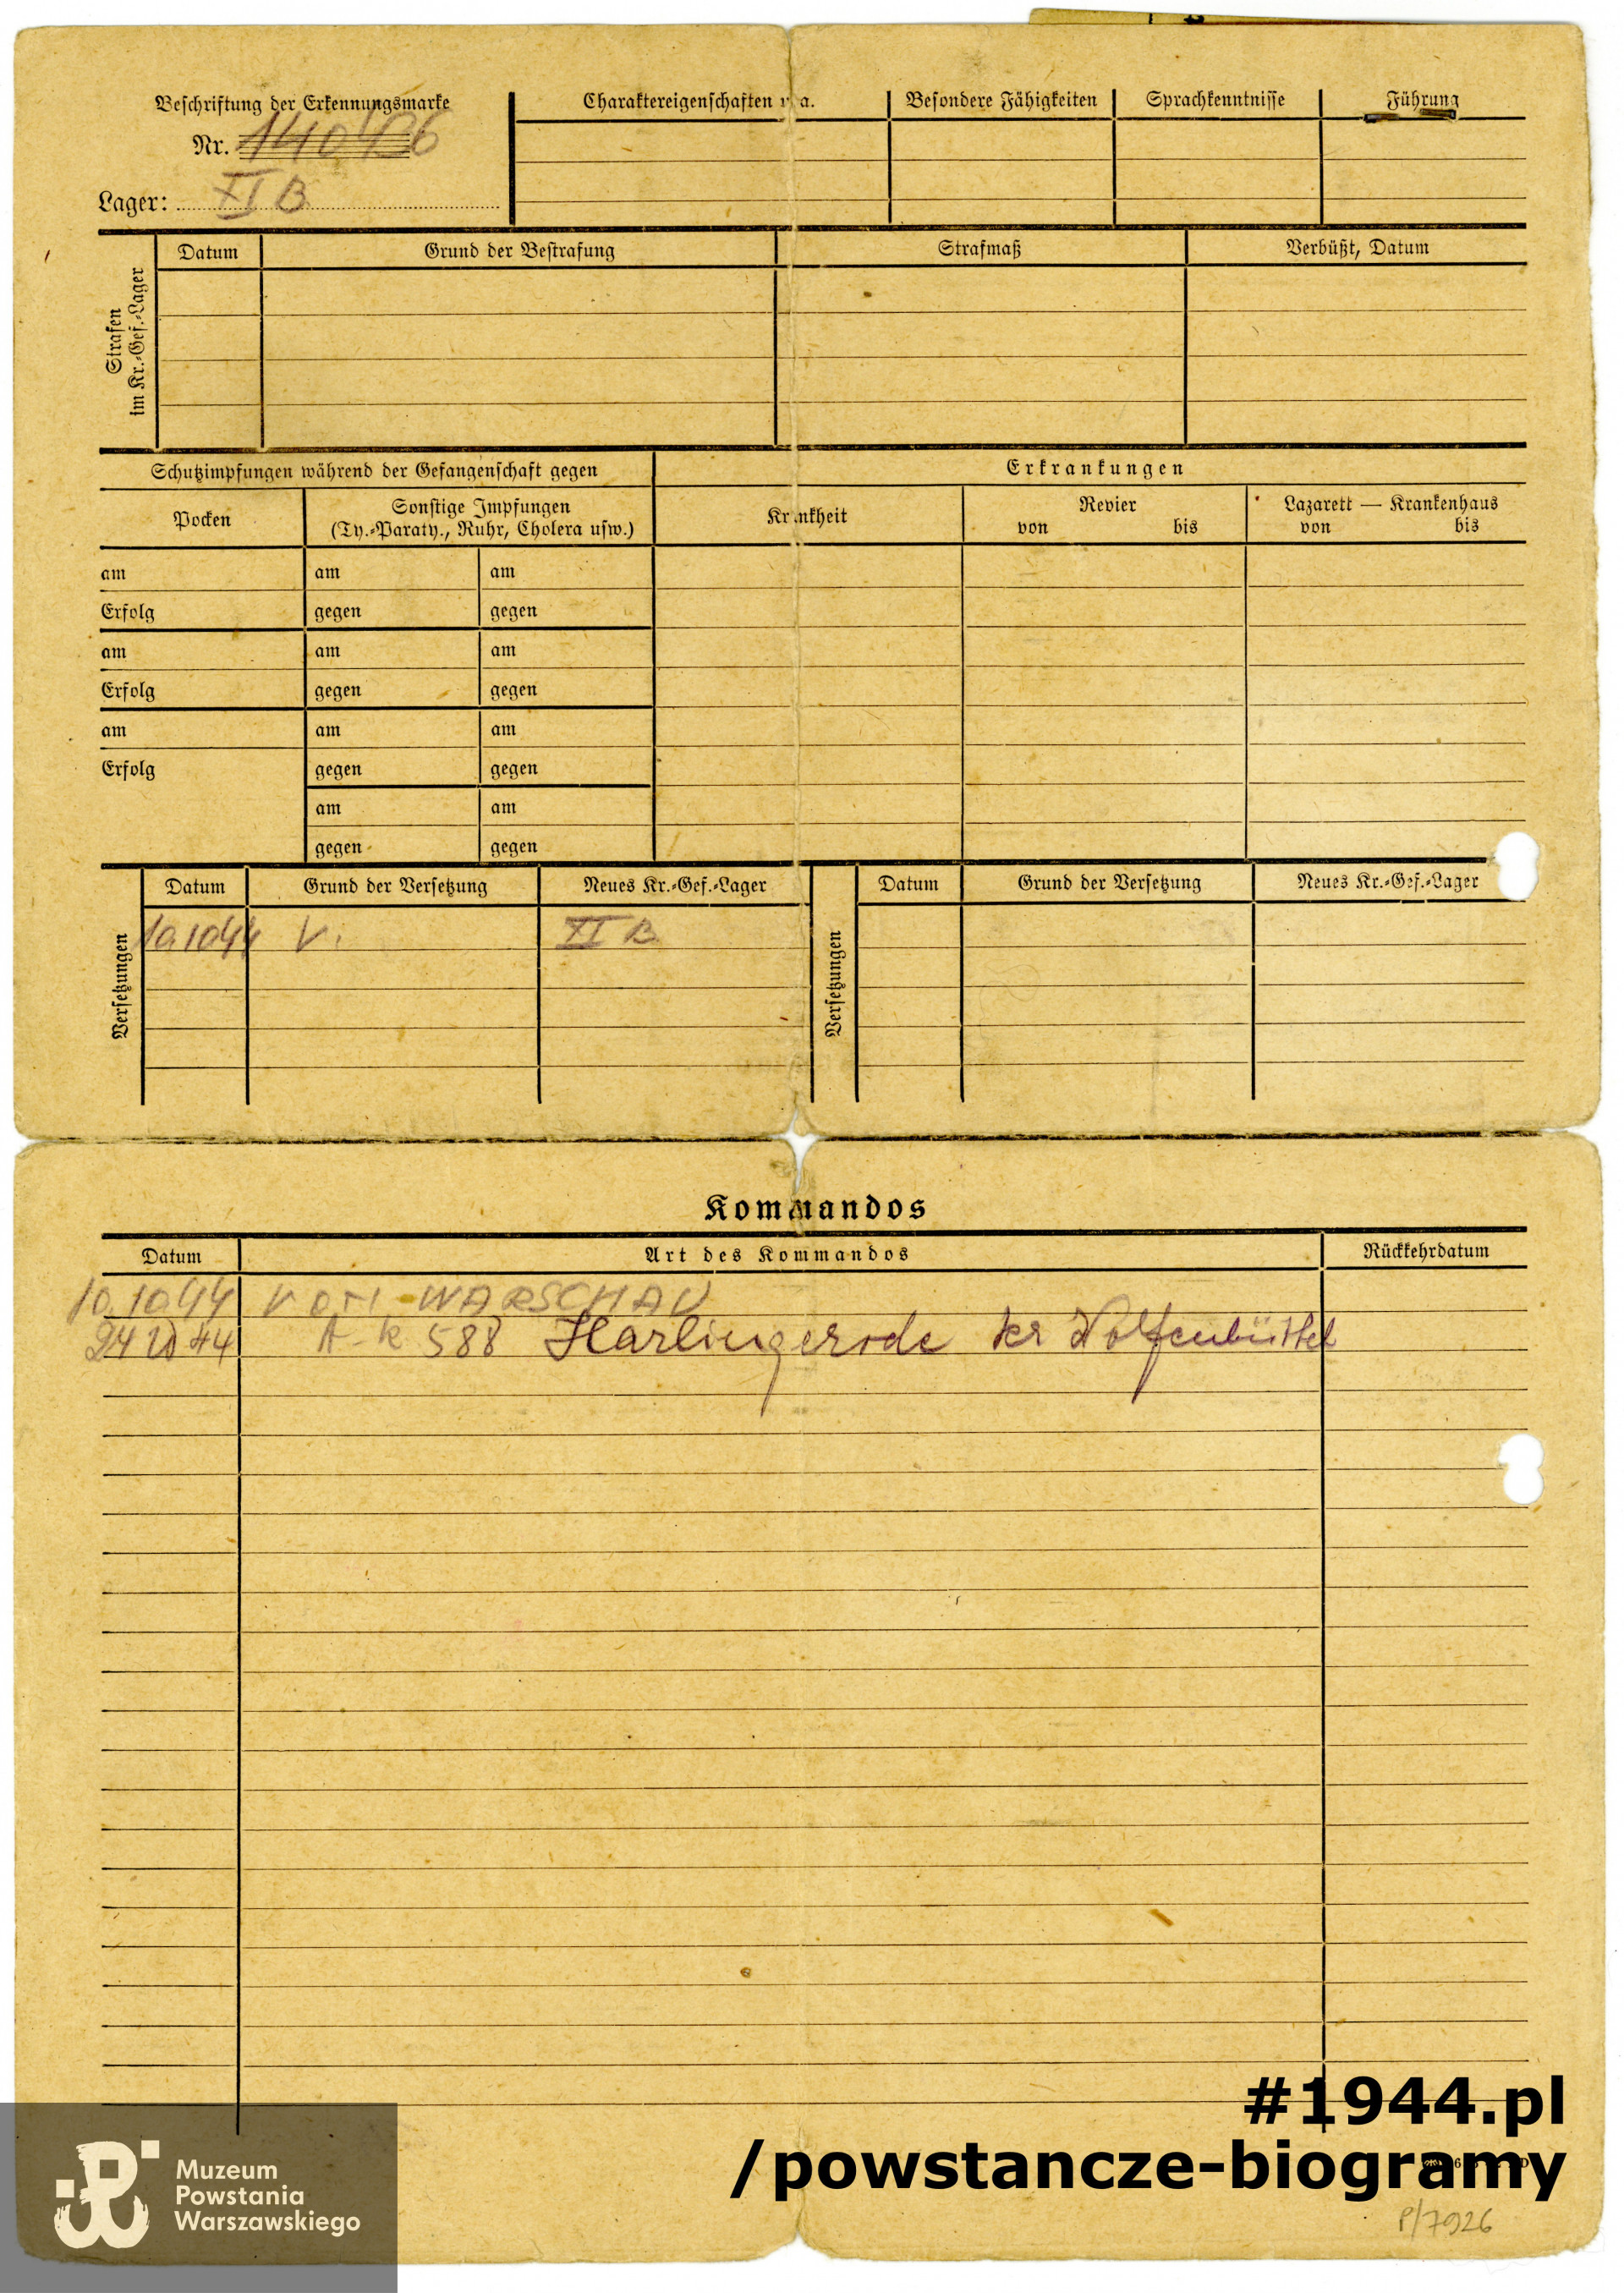 Beschriftung der Erkennungsmarke
Nr. 140426
Lager: XI B
Charaktereigenschaften u. a.
Besondere Fähigkeiten
Sprachkenntnisse
Führung
Strafen
im Kr.-Gef.-Lager
Datum
Grund der Bestrafung
Strafmaß
Verbüßt, Datum
Schutzimpfungen während der Gefangenschaft gegen
Erkrankungen
Pocken
Sonstige Impfungen
(Ty.-Paraty., Ruhr, Cholera usw.)
Krankheit
Revier
von bis
Lazarett — Krankenhaus
von bis
am am am
Erfolg gegen gegen
am am am
Erfolg gegen gegen
am am am
Erfolg gegen gegen
am am
gegen gegen
Versetzungen
Datum Grund der Versetzung Neues Kr.-Gef.-Lager
10.10.44 V. XI B
Versetzungen
Datum Grund der Versetzung Neues Kr.-Gef.-Lager
Kommandos
Datum Art des Kommandos Rückkehrdatum
10.10.44 VON WARSCHAU
24 10 44 A-K 588 Harlingerode kr Wolfenbüttel
#1944.pl
/powstancze-biogramy
P/7926
Muzeum
Powstania
Warszawskiego